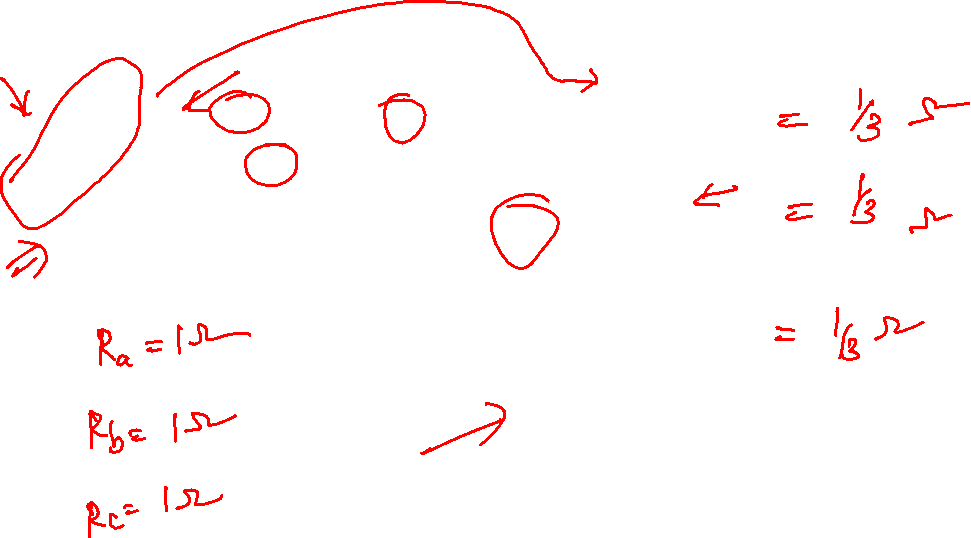 = 1/3 Ω
= 1/3 Ω
= 1/3 Ω
Ra = 1Ω
Rb = 1Ω
Rc = 1Ω